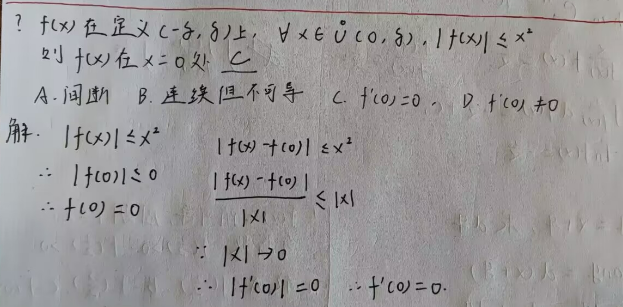 ? f(x)在定义(-δ,δ)上, ∀x∈Ů(0,δ),|f(x)|≤x²
则f(x)在x=0处 C
A.间断 B.连续但不可导 C. f'(0)=0. D. f'(0)≠0
解. |f(x)|≤x²
∴ |f(0)|≤0
∴ f(0)=0
|f(x)-f(0)|≤x²
|f(x)-f(0)| / |x| ≤|x|
∵ |x|→0
∴ |f'(0)|=0 ∴f'(0)=0.